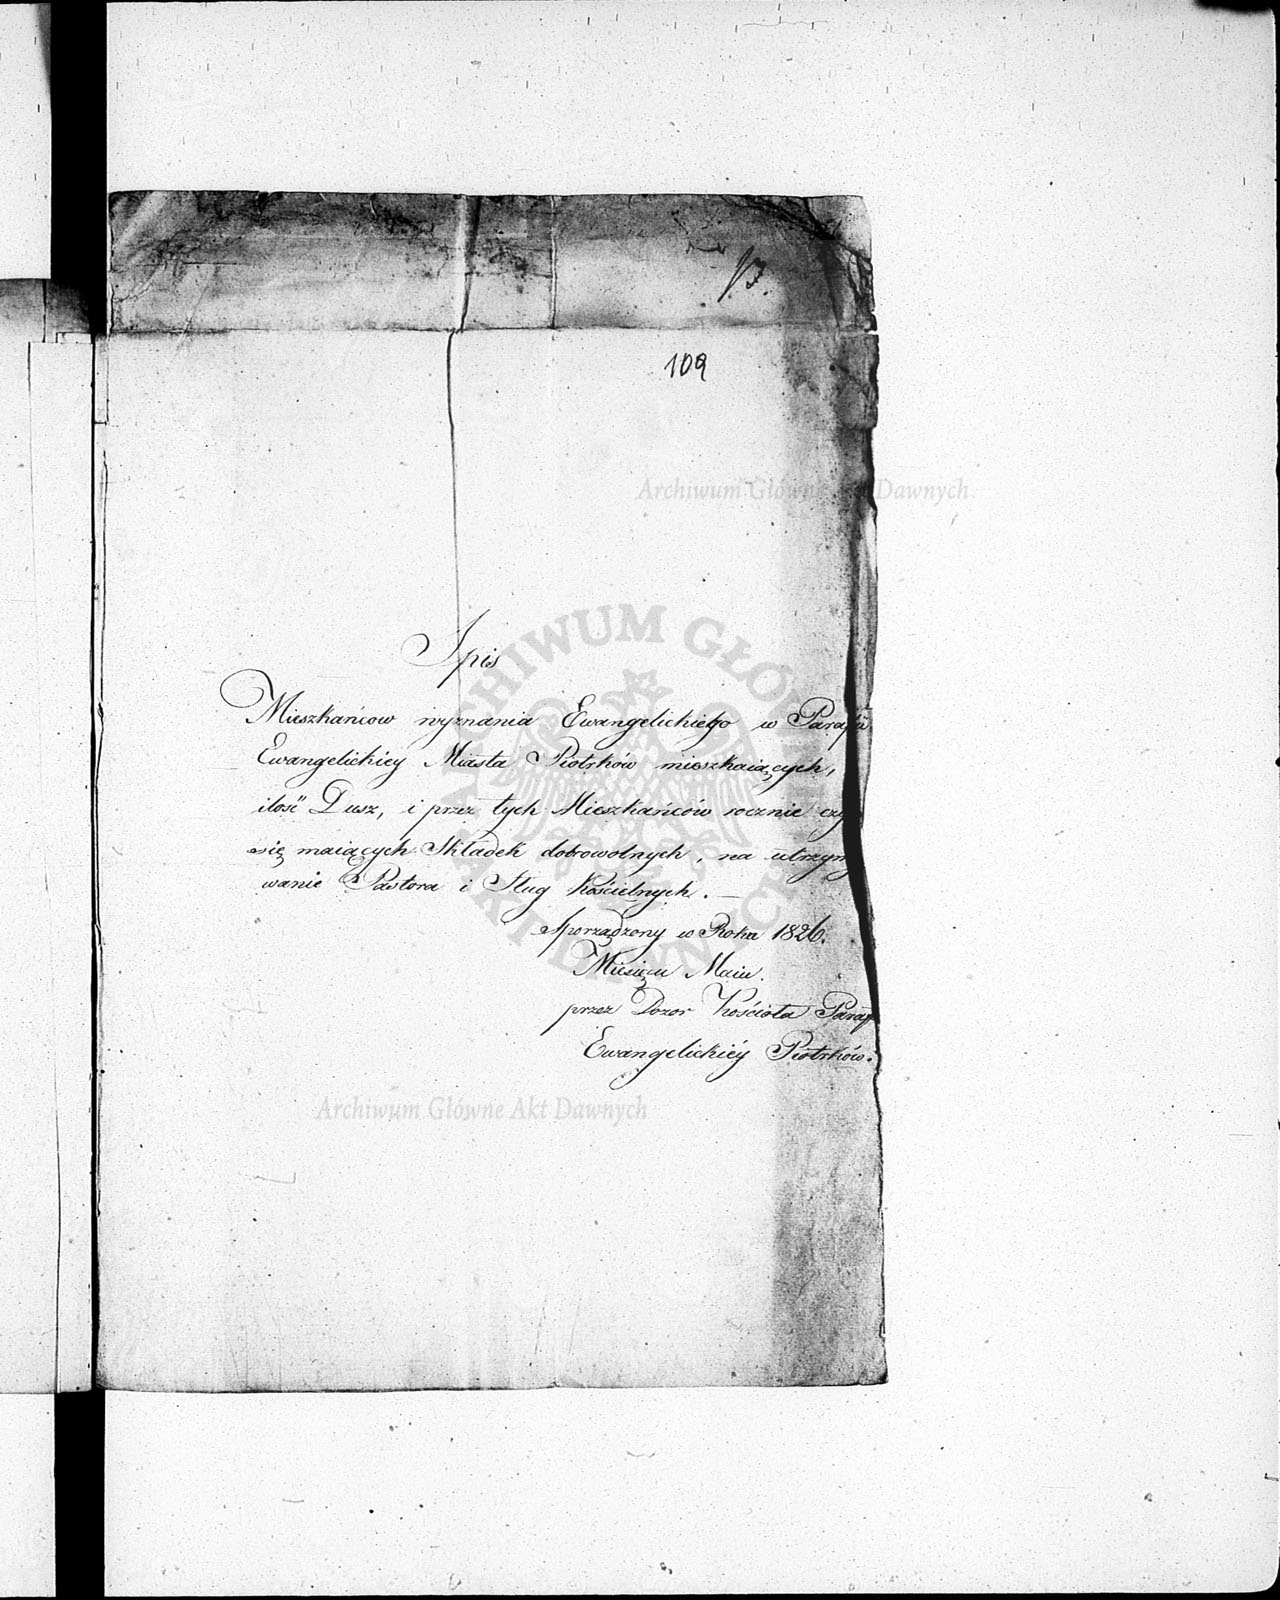 B.
109
Spis
Mieszkańcow wyznania Ewangelickiego w Parafii
Ewangelickiey Miasta Piotrków mieszkaiących,
ilość Dusz, i przez tych Mieszkańców rocznie czy
się maiących Składek dobrowolnych, na utrzym
wanie Pastora i Sług Kościelnych. —
Sporządzony w Roku 1826.
Miesiącu Maiu.
przez Dozor Kościoła Paraf
Ewangelickiéy Piotrków.
Archiwum Główne Akt Dawnych
ARCHIWUM GŁÓWNE AKT DAWNYCH
Archiwum Główne Akt Dawnych